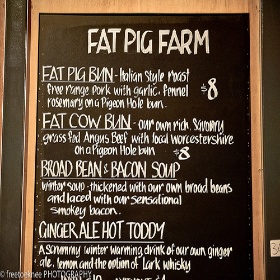 FAT PIG FARM
FAT PIG BUN - Italian Style roast
free range pork with garlic, fennel
rosemary on a Pigeon Hole bun.
$8
FAT COW BUN - our own rich, savoury
grass fed Angus Beef with local worcestershire
on a Pigeon Hole bun.
$8
BROAD BEAN & BACON SOUP
winter soup thickened with our own broad beans
and laced with our sensational
smokey bacon.
GINGER ALE HOT TODDY
A scrummy winter warming drink of our own ginger
ale, lemon and the option of Lark whisky
© freetoeknee PHOTOGRAPHY